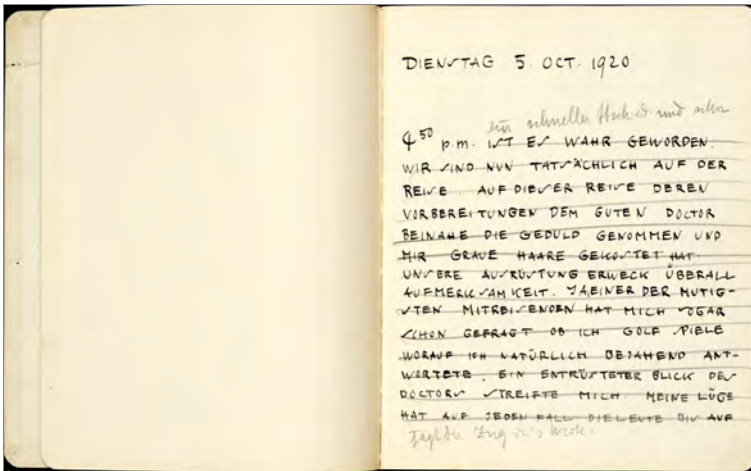 DIENSTAG 5. OCT. 1920
ein schneller Abschied und schon
4 50 p.m. IST ES WAHR GEWORDEN.
WIR SIND NUN TATSÄCHLICH AUF DER
REISE. AUF DIESER REISE DEREN
VORBEREITUNGEN DEM GUTEN DOCTOR
BEINAHE DIE GEDULD GENOMMEN UND
MIR GRAUE HAARE GEKOSTET HAT.
UNSERE AUSRÜSTUNG ERWECK ÜBERALL
AUFMERKSAMKEIT. JA, EINER DER MUTIG-
STEN MITREISENDEN HAT MICH SOGAR
SCHON GEFRAGT OB ICH GOLF SPIELE
WORAUF ICH NATÜRLICH BEJAHEND ANT-
WORTETE. EIN ENTRÜSTETER BLICK DES
DOCTORS STREIFTE MICH. MEINE LÜGE
HAT AUF JEDEN FALL DIE LEUTE BIS AUF
der Zug